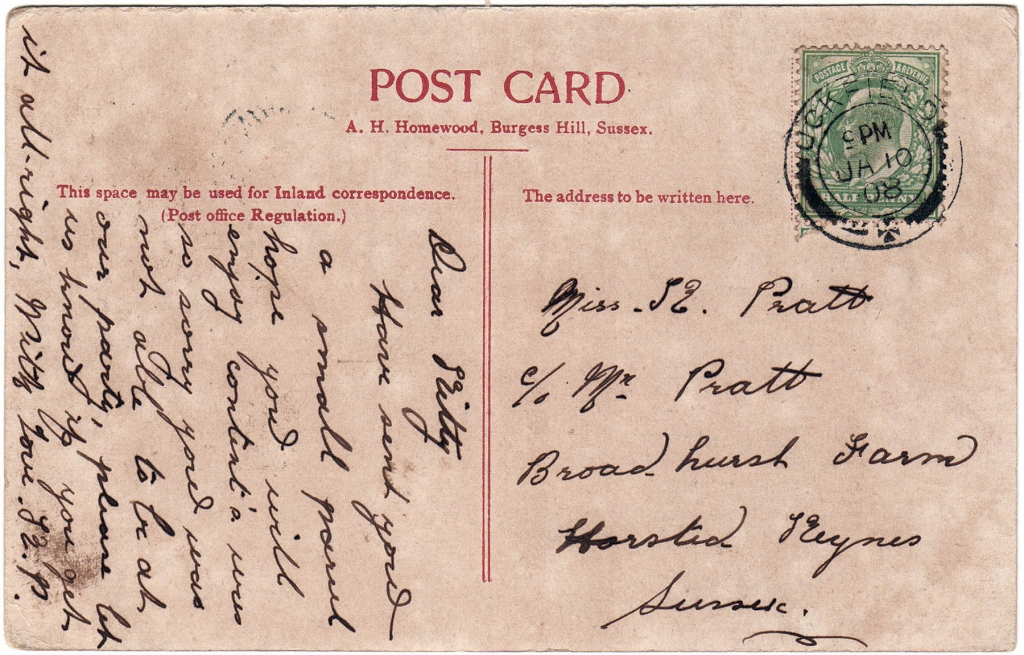 POST CARD
A. H. Homewood, Burgess Hill, Sussex.
This space may be used for Inland correspondence.
(Post office Regulation.)
The address to be written here.
POSTAGE & REVENUE
HALFPENNY
UCKFIELD
9 PM
JA 10
08
Dear Kitty
Have sent you
a small parcel
hope you will
enjoy content's was
so sorry you was
not able to be at
our party, please let
us know if you get
it all-right, With love.
Miss. K. Pratt
c/o Mr Pratt
Broadhurst Farm
Horsted Keynes
Sussex.